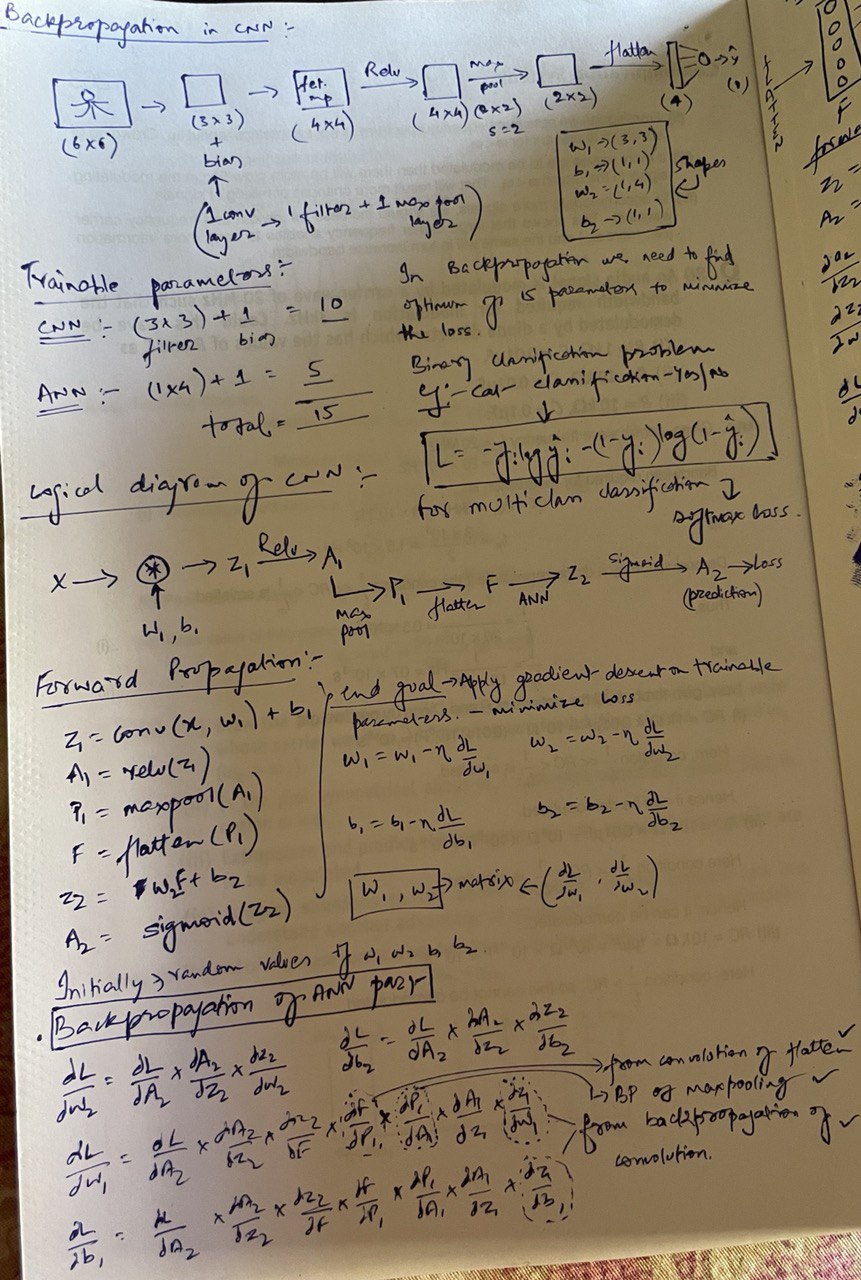 Backpropagation in CNN :-
(6x6) → (3x3) + bias → fet. mp (4x4) Relu → (4x4) max pool (2x2) s=2 → (2x2) flatten → (4) → ŷ (1)
(1 conv layer → 1 filter + 1 max pool layer)
W₁ → (3,3)
b₁ → (1,1)
W₂ = (1,4)
b₂ → (1,1)
shapes
Trainable parameters :-
CNN :- (3x3) + 1 = 10
filter bias
ANN :- (1x4) + 1 = 5
total = 15
In Backpropagation we need to find
optimum of 15 parameters to minimize
the loss.
Binary classification problem
eg:- Cat classification - Yes/No
L = -yᵢ log ŷᵢ - (1-yᵢ) log (1-ŷᵢ)
for multiclass classification ↓
softmax loss.
Logical diagram of CNN :-
X → (*) → Z₁ Relu → A₁
W₁, b₁
max pool → P₁ → flatten F → ANN Z₂ sigmoid → A₂ → Loss
(prediction)
Forward Propagation :-
Z₁ = conv(x, W₁) + b₁
A₁ = relu(Z₁)
P₁ = maxpool(A₁)
F = flatten(P₁)
Z₂ = W₂F + b₂
A₂ = sigmoid(Z₂)
end goal → Apply gradient descent on trainable
parameters. - minimize loss
W₁ = W₁ - η ∂L/∂W₁ W₂ = W₂ - η ∂L/∂W₂
b₁ = b₁ - η ∂L/∂b₁ b₂ = b₂ - η ∂L/∂b₂
W₁, W₂ → matrix ← (∂L/∂W₁, ∂L/∂W₂)
Initially → random values of W₁ W₂ b₁ b₂
. Backpropagation of ANN part
∂L/∂W₂ = ∂L/∂A₂ × ∂A₂/∂Z₂ × ∂Z₂/∂W₂ ∂L/∂b₂ = ∂L/∂A₂ × ∂A₂/∂Z₂ × ∂Z₂/∂b₂
∂L/∂W₁ = ∂L/∂A₂ × ∂A₂/∂Z₂ × ∂Z₂/∂F × ∂F/∂P₁ × ∂P₁/∂A₁ × ∂A₁/∂Z₁ × ∂Z₁/∂W₁
∂L/∂b₁ = ∂L/∂A₂ × ∂A₂/∂Z₂ × ∂Z₂/∂F × ∂F/∂P₁ × ∂P₁/∂A₁ × ∂A₁/∂Z₁ × ∂Z₁/∂b₁
→ from convolution of flatten ✓
→ BP of maxpooling ✓
from backpropagation of ✓
convolution.
F
Z₂ =
A₂ =